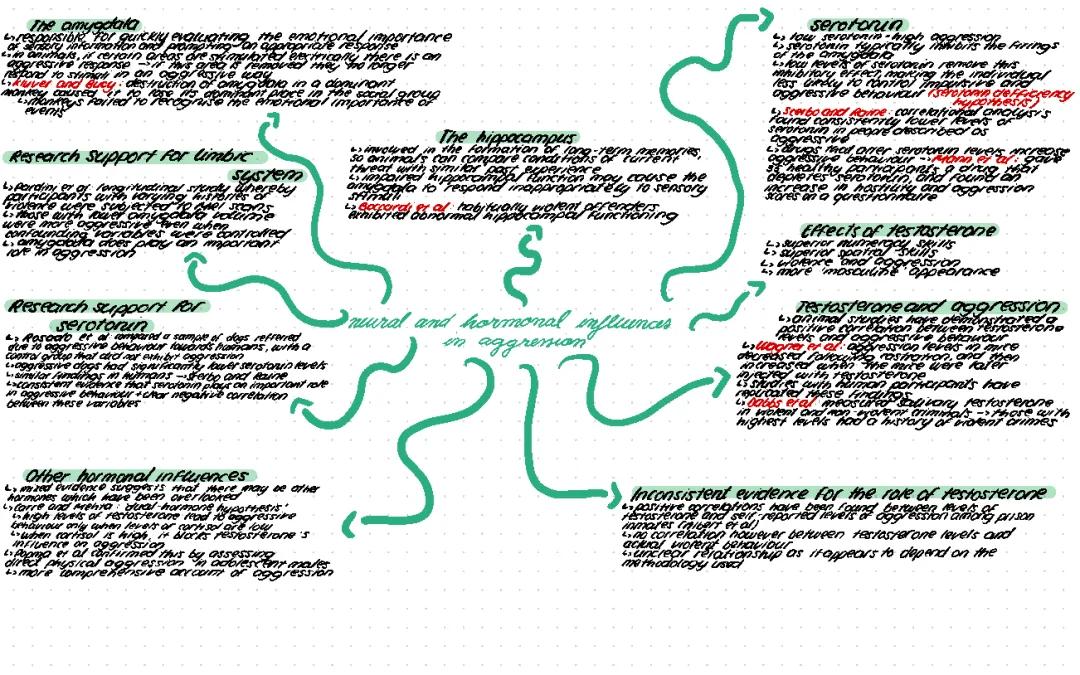 The amygdala
↳ responsible for quickly evaluating the emotional importance
of sensory information and prompting an appropriate response
↳ in animals, if certain areas are stimulated electrically, there is an
aggressive response → if this area is removed they no longer
respond to stimuli in an aggressive way
↳ Kluver and Bucy: destruction of amygdala in a dominant
monkey caused it to lose its dominant place in the social group
↳ monkeys failed to recognise the emotional importance of
events
Research support for limbic
system
↳ Pardini et al longitudinal study whereby
participants with varying histories of
violence were subjected to brain scans
↳ those with lower amygdala volume
were more aggressive even when
confounding variables were controlled
↳ amygdala does play an important
role in aggression
Research support for
serotonin
↳ Rosado et al compared a sample of dogs referred
due to aggressive behaviour towards humans, with a
control group that did not exhibit aggression
↳ aggressive dogs had significantly lower serotonin levels
↳ similar findings in humans → Scerbo and Raine
↳ consistent evidence that serotonin plays an important role
in aggressive behaviour + clear negative correlation
between these variables
Other hormonal influences
↳ mixed evidence suggests that there may be other
hormones which have been overlooked
↳ Carre and Mehta: 'dual-hormone hypothesis'
↳ high levels of testosterone lead to aggressive
behaviour only when levels of cortisol are low
↳ when cortisol is high, it blocks testosterone's
influence on aggression
↳ Popma et al confirmed this by assessing
direct physical aggression in adolescent males
↳ more comprehensive account of aggression
The hippocampus
↳ involved in the formation of long-term memories,
so animals can compare conditions of current
threat with similar past experience
↳ impaired hippocampal function may cause the
amygdala to respond inappropriately to sensory
stimuli
↳ Boccardi et al: habitually violent offenders
exhibited abnormal hippocampal functioning
neural and hormonal influences
in aggression
serotonin
↳ low serotonin - high aggression
↳ serotonin typically inhibits the firings
of the amygdala
↳ low levels of serotonin remove this
inhibitory effect, making the individual
less likely to control impulsive and
aggressive behaviour (serotonin defficiency
hypothesis)
↳ Scerbo and Raine: correlational analysis
found consistently lower levels of
serotonin in people described as
aggressive
↳ drugs that alter serotonin levels increase
aggressive behaviour → Mann et al: gave
35 healthy participants a drug that
depletes serotonin, and found an
increase in hostility and aggression
scores in a questionnaire
Effects of testosterone
↳ superior numeracy skills
↳ superior spatial skills
↳ violence and aggression
↳ more 'masculine' appearance
Testosterone and aggression
↳ animal studies have demonstrated a
positive correlation between testosterone
levels and aggressive behaviour
↳ Wagner et al: aggression levels in mice
decreased following castration, and then
increased when the mice were later
injected with testosterone
↳ studies with human participants have
replicated these findings
↳ Dabbs et al measured salivary testosterone
in violent and non violent criminals → those with
highest levels had a history of violent crimes
Inconsistent evidence for the role of testosterone
↳ positive correlations have been found between levels of
testosterone and self-reported levels of aggression among prison
inmates (Albert et al)
↳ no correlation however between testosterone levels and
actual violent behaviour
↳ unclear relationship as it appears to depend on the
methodology used